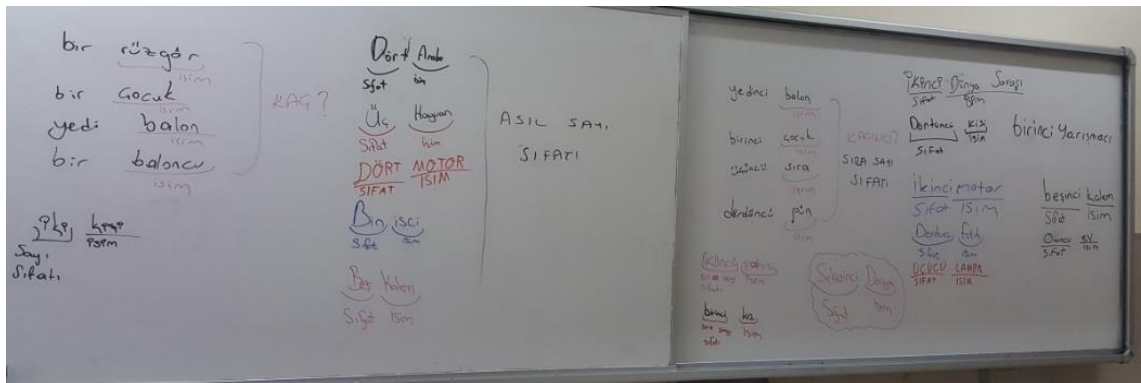 bir rüzgâr
isim
bir çocuk
isim
yedi balon
isim
bir baloncu
isim
KAÇ?
iki kişi
isim
Sayı
Sıfatı
Dört Araba
Sıfat isim
Üç Hayvan
Sıfat isim
DÖRT MOTOR
SIFAT İSİM
Bin işçi
Sıfat isim
Beş Kalem
Sıfat isim
ASIL SAYI
SIFATI
yedinci balon
isim
birinci çocuk
isim
üçüncü sıra
isim
dördüncü gün
isim
KAÇINCI?
SIRA SAYI
SIFATI
isim
sıfatı
birinci kız
sıra sayı isim
sıfatı
Sekizinci Dünya
Sıfat isim
İkinci Dünya Savaşı
Sıfat isim
Dördüncü kişi
Sıfat isim
birinci yarışmacı
ikinci motor
Sıfat İsim
Sıfat isim
LAMBA
SIFAT İSİM
beşinci kalem
Sıfat isim
Onuncu ev
Sıfat isim